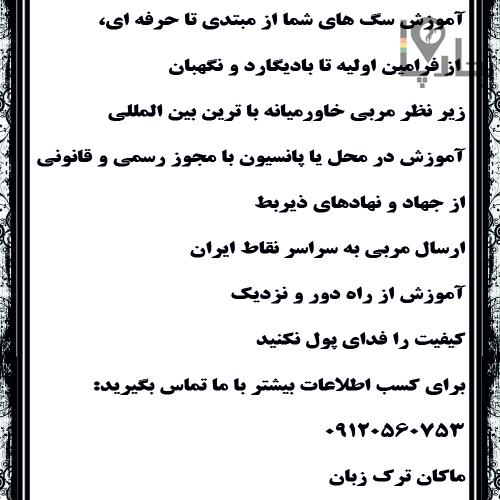 آموزش سگ های شما از مبتدی تا حرفه ای،
از فرامین اولیه تا بادیگارد و نگهبان
زیر نظر مربی خاورمیانه با ترین بین المللی
آموزش در محل یا پانسیون با مجوز رسمی و قانونی
از جهاد و نهادهای ذیربط
ارسال مربی به سراسر نقاط ایران
آموزش از راه دور و نزدیک
کیفیت را فدای پول نکنید
برای کسب اطلاعات بیشتر با ما تماس بگیرید:
۰۹۱۲۰۵۶۰۷۵۳
ماکان ترک زبان